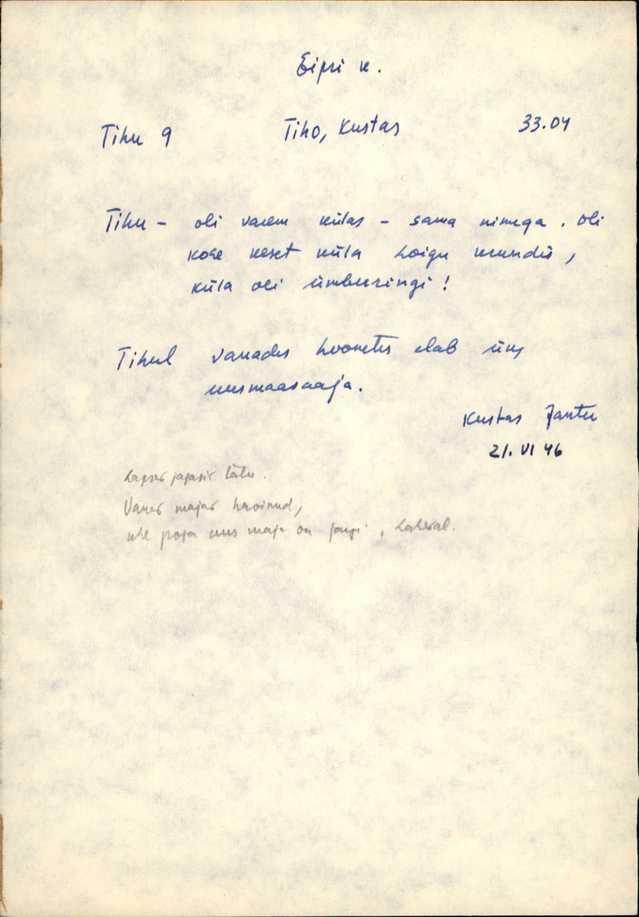 Eipri k.
Tihu 9 Tiho, Kustas 33.04
Tihu - oli varem külas - sama nimega. oli
kohe keset küla hoigu
küla oli ümberringi!
Tihul vanades hoonetes elab üks
uusmaasaaja.
Kustas Jantu
21. VI 46
Lapsed jagasid talu.
Vanad majad hävinud,
ühe poja uus maja on , lähedal.